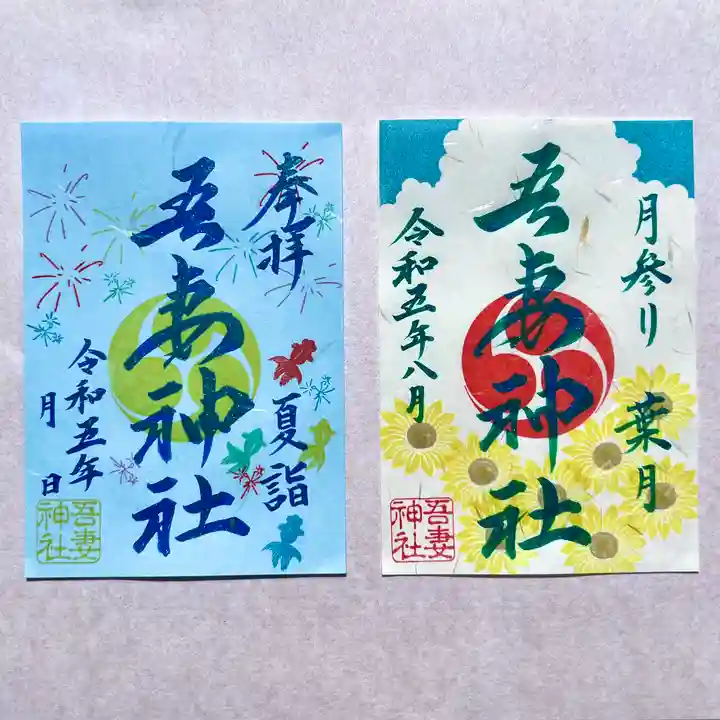 奉拝
夏詣
吾妻神社
令和五年
月 日
吾妻
神社
月参り
葉月
吾妻神社
令和五年八月
吾妻
神社